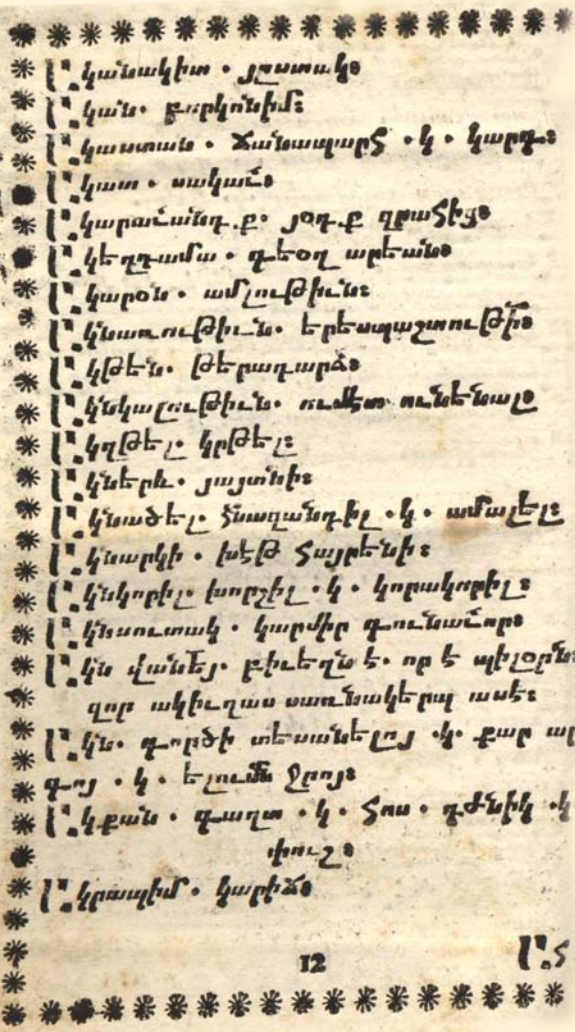 Ականակիտ . յըստակ։
Ական. քարկոնիմ։
Ակաստան . ճանապարհ . կ . կարգ։
Ակատ . սակաւ։
Ակարաւանդ.ք. յօդ.ք զրահից։
Ակեղդամա . գեօղ արեան։
Ակարօն . ամլութիւն։
Ակնառութիւն. երեսպաշտութի՛։
Ակթեն. թերադարձ։
Ակնկալութիւն. ումետ ունենալ։
Ակղթել. կրթել։
Ակներև. յայտնի։
Ակնածել. հնազանդիլ .կ. ամաչել։
Ակնարկի . խէթ հայրենի։
Ակնկորիլ. խորշիլ .կ. կորակորիլ։
Ակնսուտակ . կարմիր գունաւոր։
Ակն վանեյ. բիւեղն է. որ է պիլօրն։
զոր ակիւղաս սառնակերպ ասէ։
Ակն. գործի տեսանելոյ .կ. քար ար
գոյ .կ. ելումն ջրոյ։
Ակքան . գաղտ .կ. հոս . դժնիկ .կ
փուշ։
Ակրապիմ . կարիճ։
12 Ահ